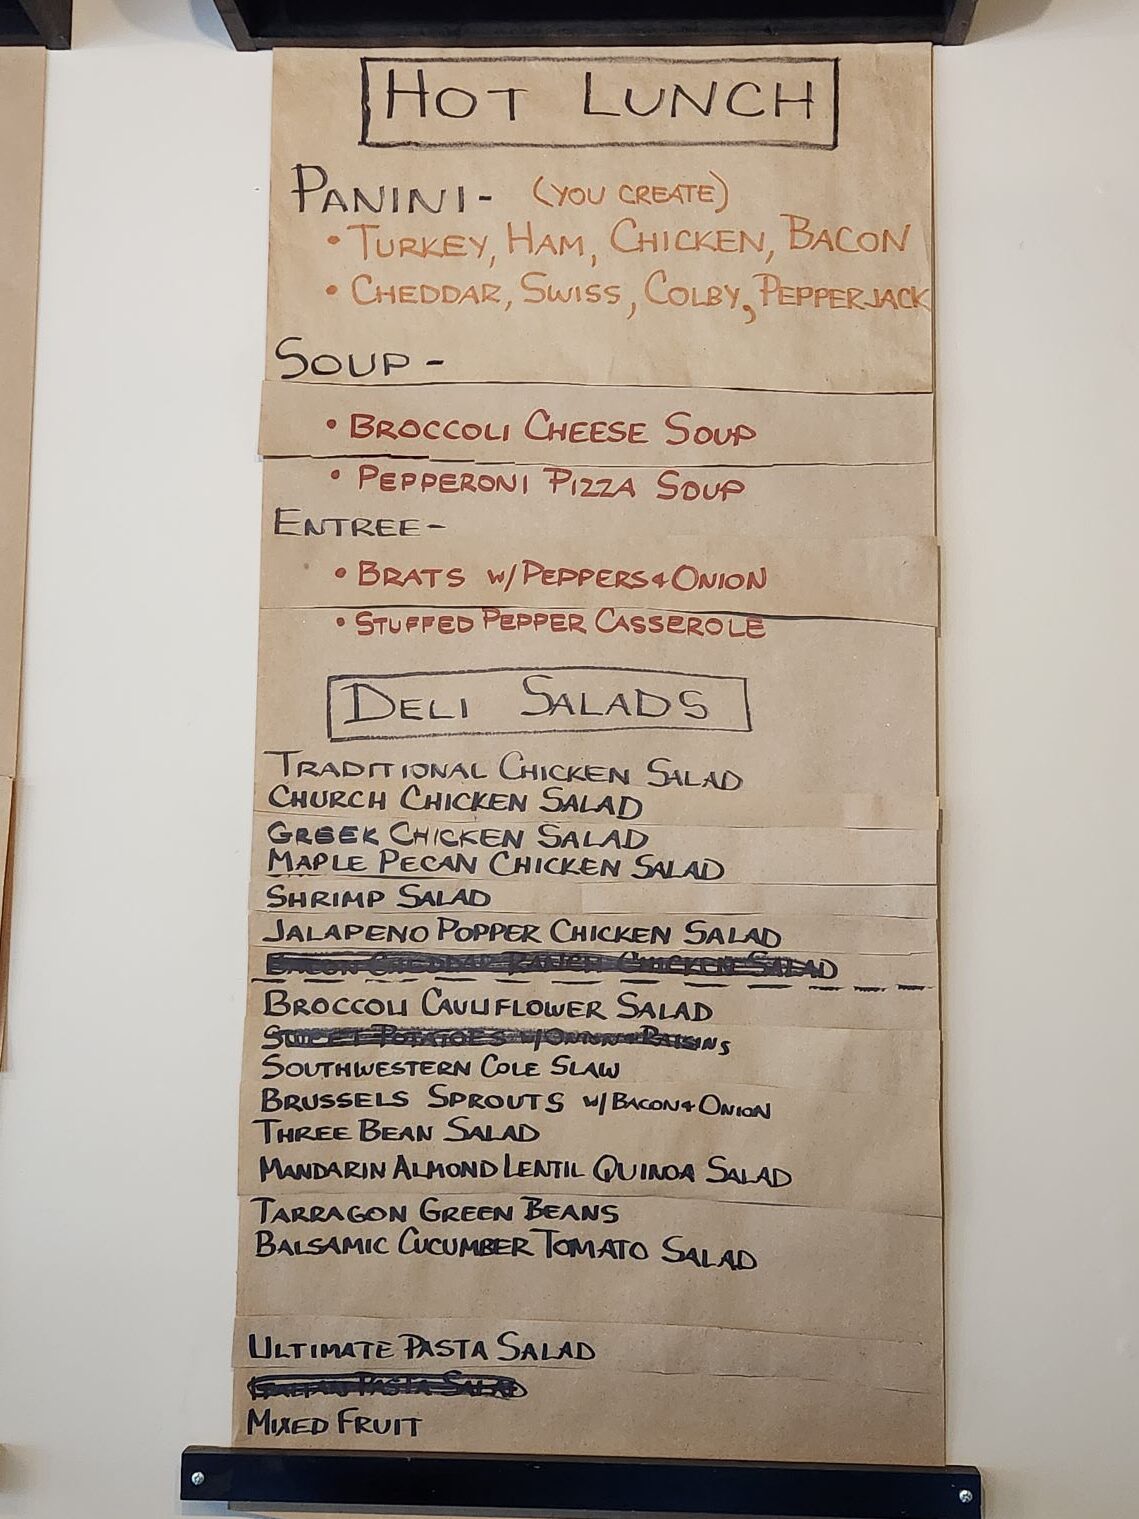 HOT LUNCH
PANINI- (YOU CREATE)
• TURKEY, HAM, CHICKEN, BACON
• CHEDDAR, SWISS, COLBY, PEPPERJACK
SOUP-
• BROCCOLI CHEESE SOUP
• PEPPERONI PIZZA SOUP
ENTREE-
• BRATS W/PEPPERS & ONION
• STUFFED PEPPER CASSEROLE
DELI SALADS
TRADITIONAL CHICKEN SALAD
CHURCH CHICKEN SALAD
GREEK CHICKEN SALAD
MAPLE PECAN CHICKEN SALAD
SHRIMP SALAD
JALAPENO POPPER CHICKEN SALAD
BACON CHEDDAR RANCH CHICKEN SALAD
BROCCOLI CAULIFLOWER SALAD
SWEET POTATOES W/ONION & RAISINS
SOUTHWESTERN COLE SLAW
BRUSSELS SPROUTS W/BACON & ONION
THREE BEAN SALAD
MANDARIN ALMOND LENTIL QUINOA SALAD
TARRAGON GREEN BEANS
BALSAMIC CUCUMBER TOMATO SALAD
ULTIMATE PASTA SALAD
ITALIAN PASTA SALAD
MIXED FRUIT